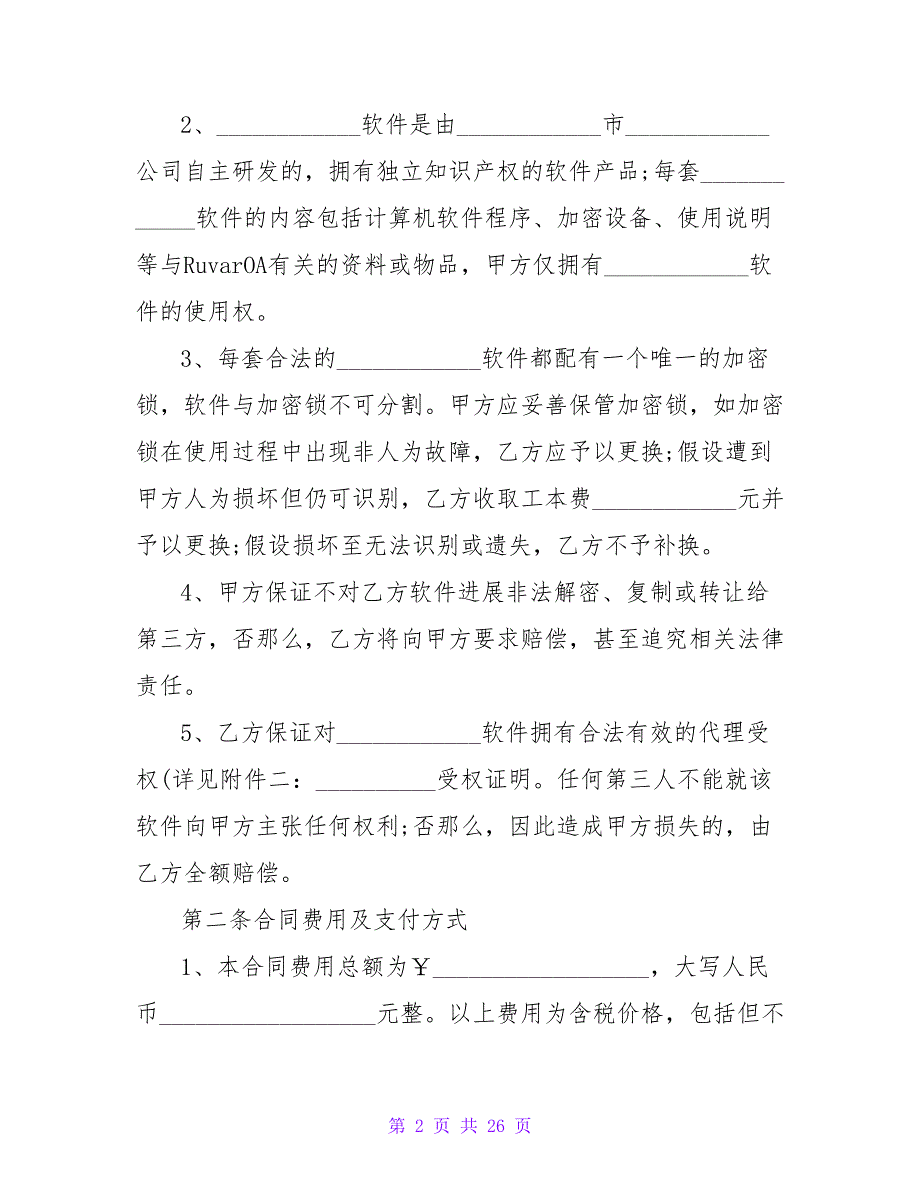 2、____________软件是由____________市____________
公司自主研发的，拥有独立知识产权的软件产品;每套_______
_____软件的内容包括计算机软件程序、加密设备、使用说明
等与RuvarOA有关的资料或物品，甲方仅拥有____________软
件的使用权。
3、每套合法的____________软件都配有一个唯一的加密
锁，软件与加密锁不可分割。甲方应妥善保管加密锁，如加密
锁在使用过程中出现非人为故障，乙方应予以更换;假设遭到
甲方人为损坏但仍可识别，乙方收取工本费____________元并
予以更换;假设损坏至无法识别或遗失，乙方不予补换。
4、甲方保证不对乙方软件进展非法解密、复制或转让给
第三方，否那么，乙方将向甲方要求赔偿，甚至追究相关法律
责任。
5、乙方保证对____________软件拥有合法有效的代理受
权(详见附件二：__________受权证明。任何第三人不能就该
软件向甲方主张任何权利;否那么，因此造成甲方损失的，由
乙方全额赔偿。
第二条合同费用及支付方式
1、本合同费用总额为￥__________________，大写人民
币__________________元整。以上费用为含税价格，包括但不
第 2 页 共 26 页